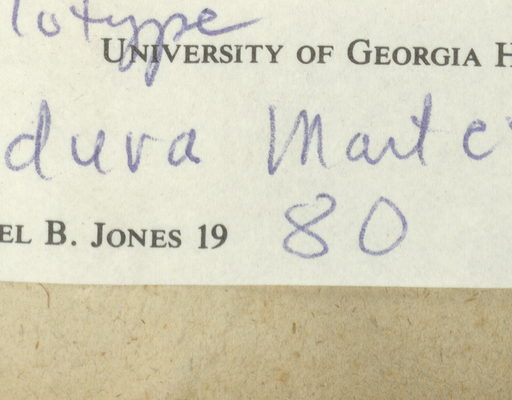 lotype
UNIVERSITY OF GEORGIA H
dura Marte
EL B. JONES 19 80